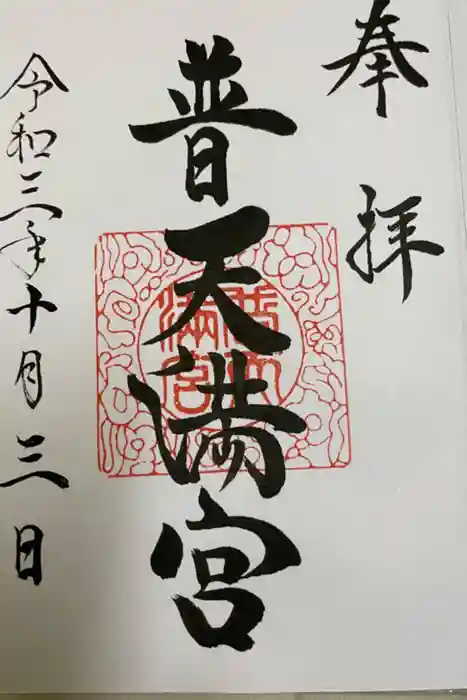 奉拝
普天満宮
普天満宮
令和三年十月三日